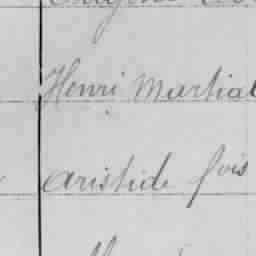 Henri Martial
Aristide fois